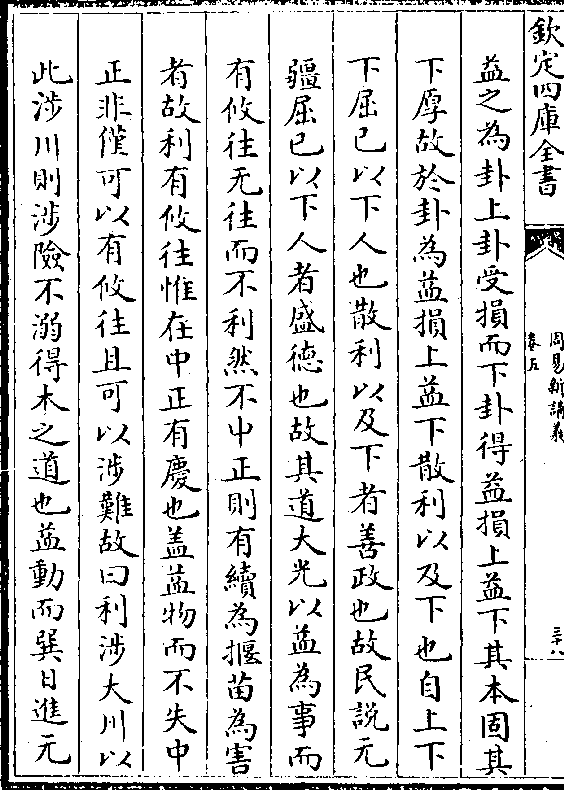 欽定四庫全書
周易新講義
卷五
三十八
益之為卦上卦受損而下卦得益損上益下其本固其
下厚故於卦為益損上益下散利以及下也自上下
下屈已以下人也散利以及下者善政也故民說无
疆屈已以下人者盛德也故其道大光以益為事而
有攸往无往而不利然不中正則有續為揠苗為害
者故利有攸往惟在中正有慶也盖益物而不失中
正非僅可以有攸往且可以涉難故曰利涉大川以
此涉川則涉險不溺得木之道也益動而巽日進无